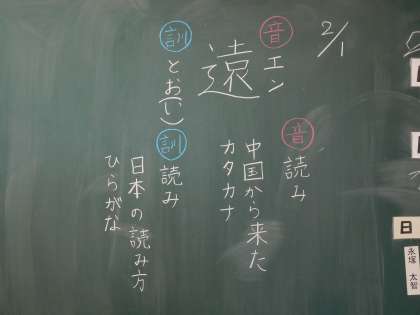 2/1
音 エン
遠
訓 とお(い)
音読み
中国から来た
カタカナ
訓読み
日本の読み方
ひらがな
日
永塚 太智